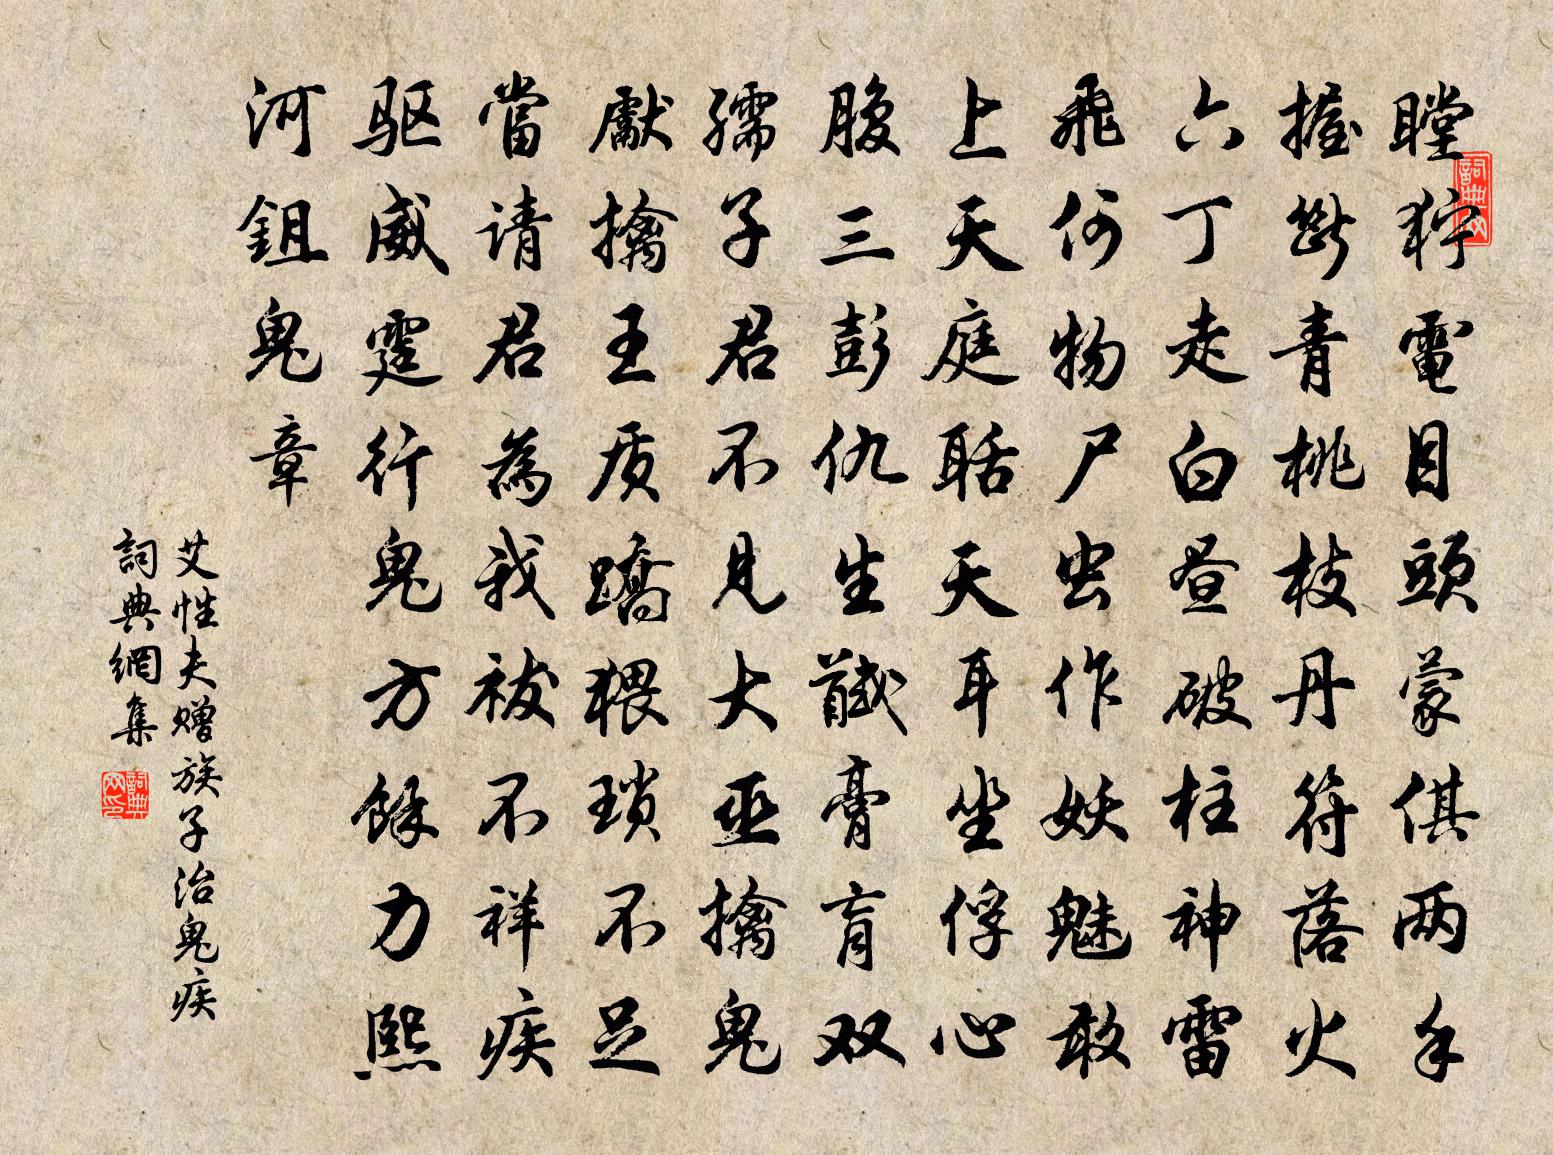 瞠狞電目頭蒙倛两手
握斷青桃枝丹符落火
六丁走白昼破柱神雷
飛何物尸虫作妖魅敢
上天庭聒天耳坐俘心
腹三彭仇生馘膏肓双
孺子君不見大巫擒鬼
獻擒王质蹻猥琐不足
當请君為我祓不祥疾
驱威霆行鬼方餘力熙
河鉏鬼章
艾性夫赠族子治鬼疾
詞典網集